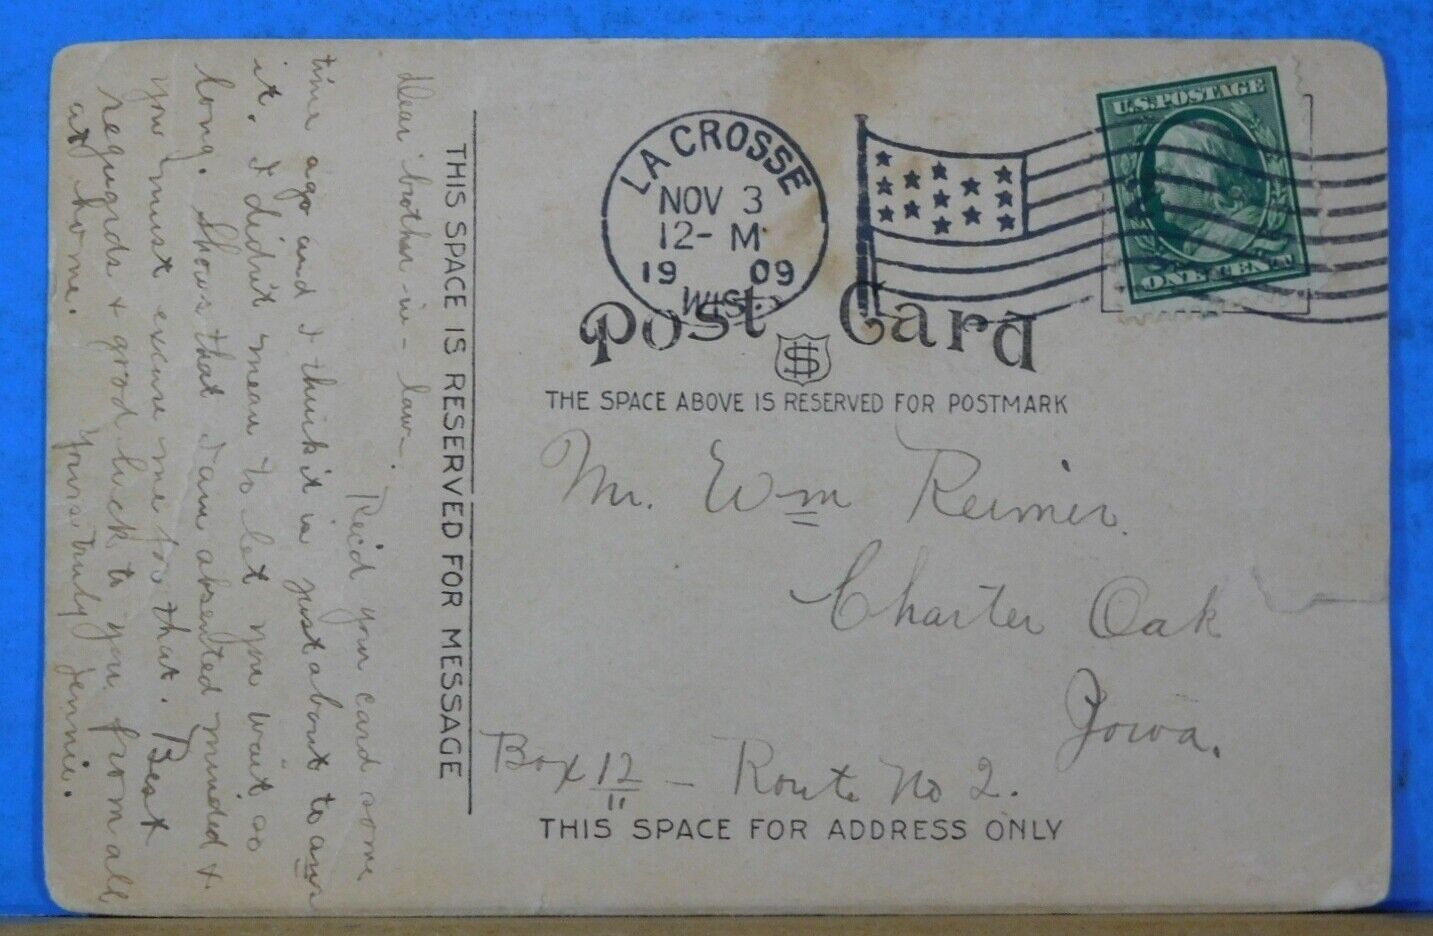 Dear brother-in-law-.
Rec'd your card some
time ago and I think it is just about to ans
it. I didn't mean to let you wait so
long. Shows that I am absented minded &
you must excuse me for that. Best
reguards & good luck to you from all
at home.
Yours truly Jennie.
THIS SPACE IS RESERVED FOR MESSAGE
LA CROSSE
NOV 3
12-M
1909
WIS.
U.S. POSTAGE
ONE CENT
Post Card
THE SPACE ABOVE IS RESERVED FOR POSTMARK
Mr. Wm Reimer.
Charter Oak
Iowa.
Box 12 - Route No 2.
THIS SPACE FOR ADDRESS ONLY